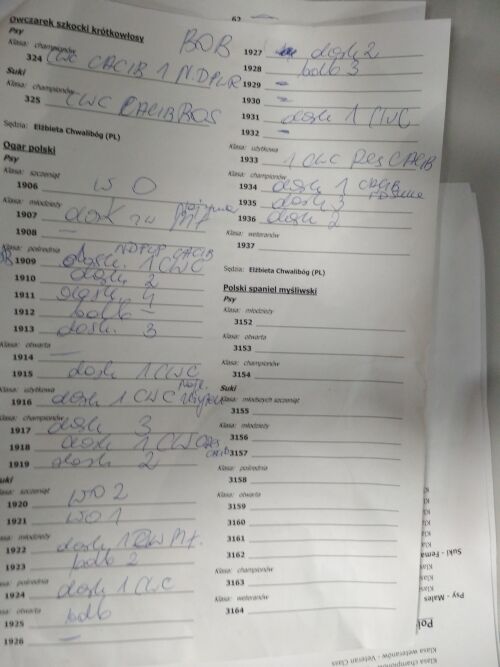 Owczarek szkocki krótkowłosy
Psy
Klasa: championów
324 CWC CACIB 1 N.DPWR
BOB
Suki
Klasa: championów
325 CWC CACIB BOS
Sędzia: Elżbieta Chwalibóg (PL)
Ogar polski
Psy
Klasa: szczeniąt
1906 WO
Klasa: młodzieży
1907 dosk zw Mł
1908 —
Klasa: pośrednia
1909 dosk. 1 CWC NDPWR CACIB
1910 dosk 2
1911 dosk. 4
1912 bdb —
1913 dosk. 3
Klasa: otwarta
1914 —
1915 dosk 1 CWC
Klasa: użytkowa
1916 dosk 1 CWC
Klasa: championów
1917 dosk 3
1918 dosk 1 CWC Res CACIB
1919 dosk 2
Suki
Klasa: szczeniąt
1920 WO 2
1921 WO 1
Klasa: młodzieży
1922 dosk 1 Mł.
1923 bdb 2
Klasa: pośrednia
1924 dosk 1 CWC
Klasa: otwarta
1925 bdb
1926 —
62
1927 dosk 2
1928 bdb 3
1929 —
1930 —
1931 dosk 1 CWC
1932 —
Klasa: użytkowa
1933 1 CWC Res CACIB
Klasa: championów
1934 dosk 1 CACIB
1935 dosk 3
1936 dosk 2
Klasa: weteranów
1937
Sędzia: Elżbieta Chwalibóg (PL)
Polski spaniel myśliwski
Psy
Klasa: młodzieży
3152
Klasa: otwarta
3153
Klasa: championów
3154
Suki
Klasa: młodszych szczeniąt
3155
Klasa: młodzieży
3156
3157
Klasa: pośrednia
3158
Klasa: otwarta
3159
3160
3161
3162
Klasa: championów
3163
Klasa: weteranów
3164
Kl
Kl
Kl
Suki - Fema
Klas
Klas
Klas
Psy - Males
Pol
Klasa weteranów - Veteran Class